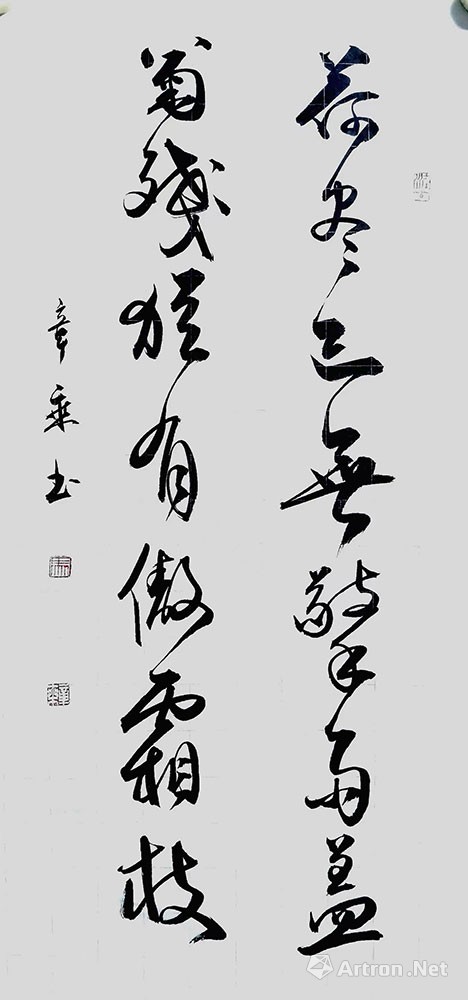 荷尽已無擎雨盖
菊殘猶有傲霜枝
章乘书
Artron.Net